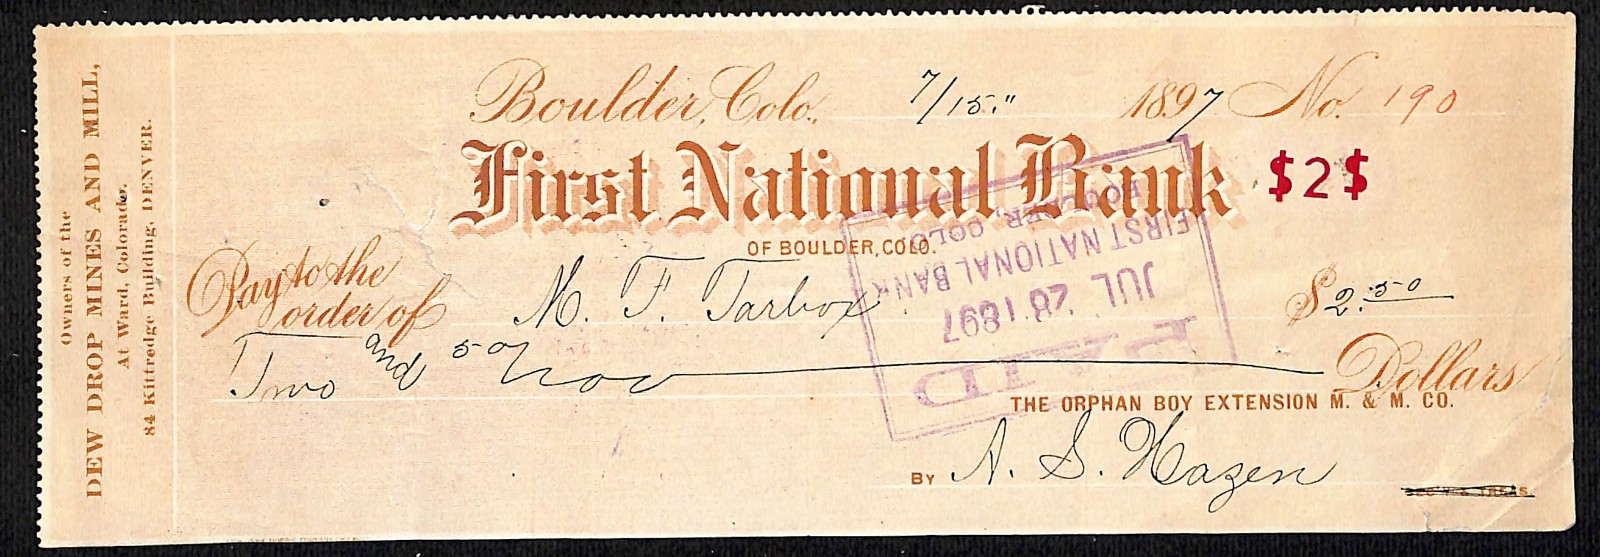 Owners of the
DEW DROP MINES AND MILL,
At Ward, Colorado.
84 Kittredge Building, DENVER.
Boulder, Colo., 7/15." 1897 No. 190
First National Bank $2$
OF BOULDER, COLO.
Pay to the
order of M. F. Tarbox $2.50
Two and 50/100 Dollars
THE ORPHAN BOY EXTENSION M. & M. CO.
BY A. S. Hazen
PAID
JUL 28 1897
FIRST NATIONAL BANK
BOULDER, COLO